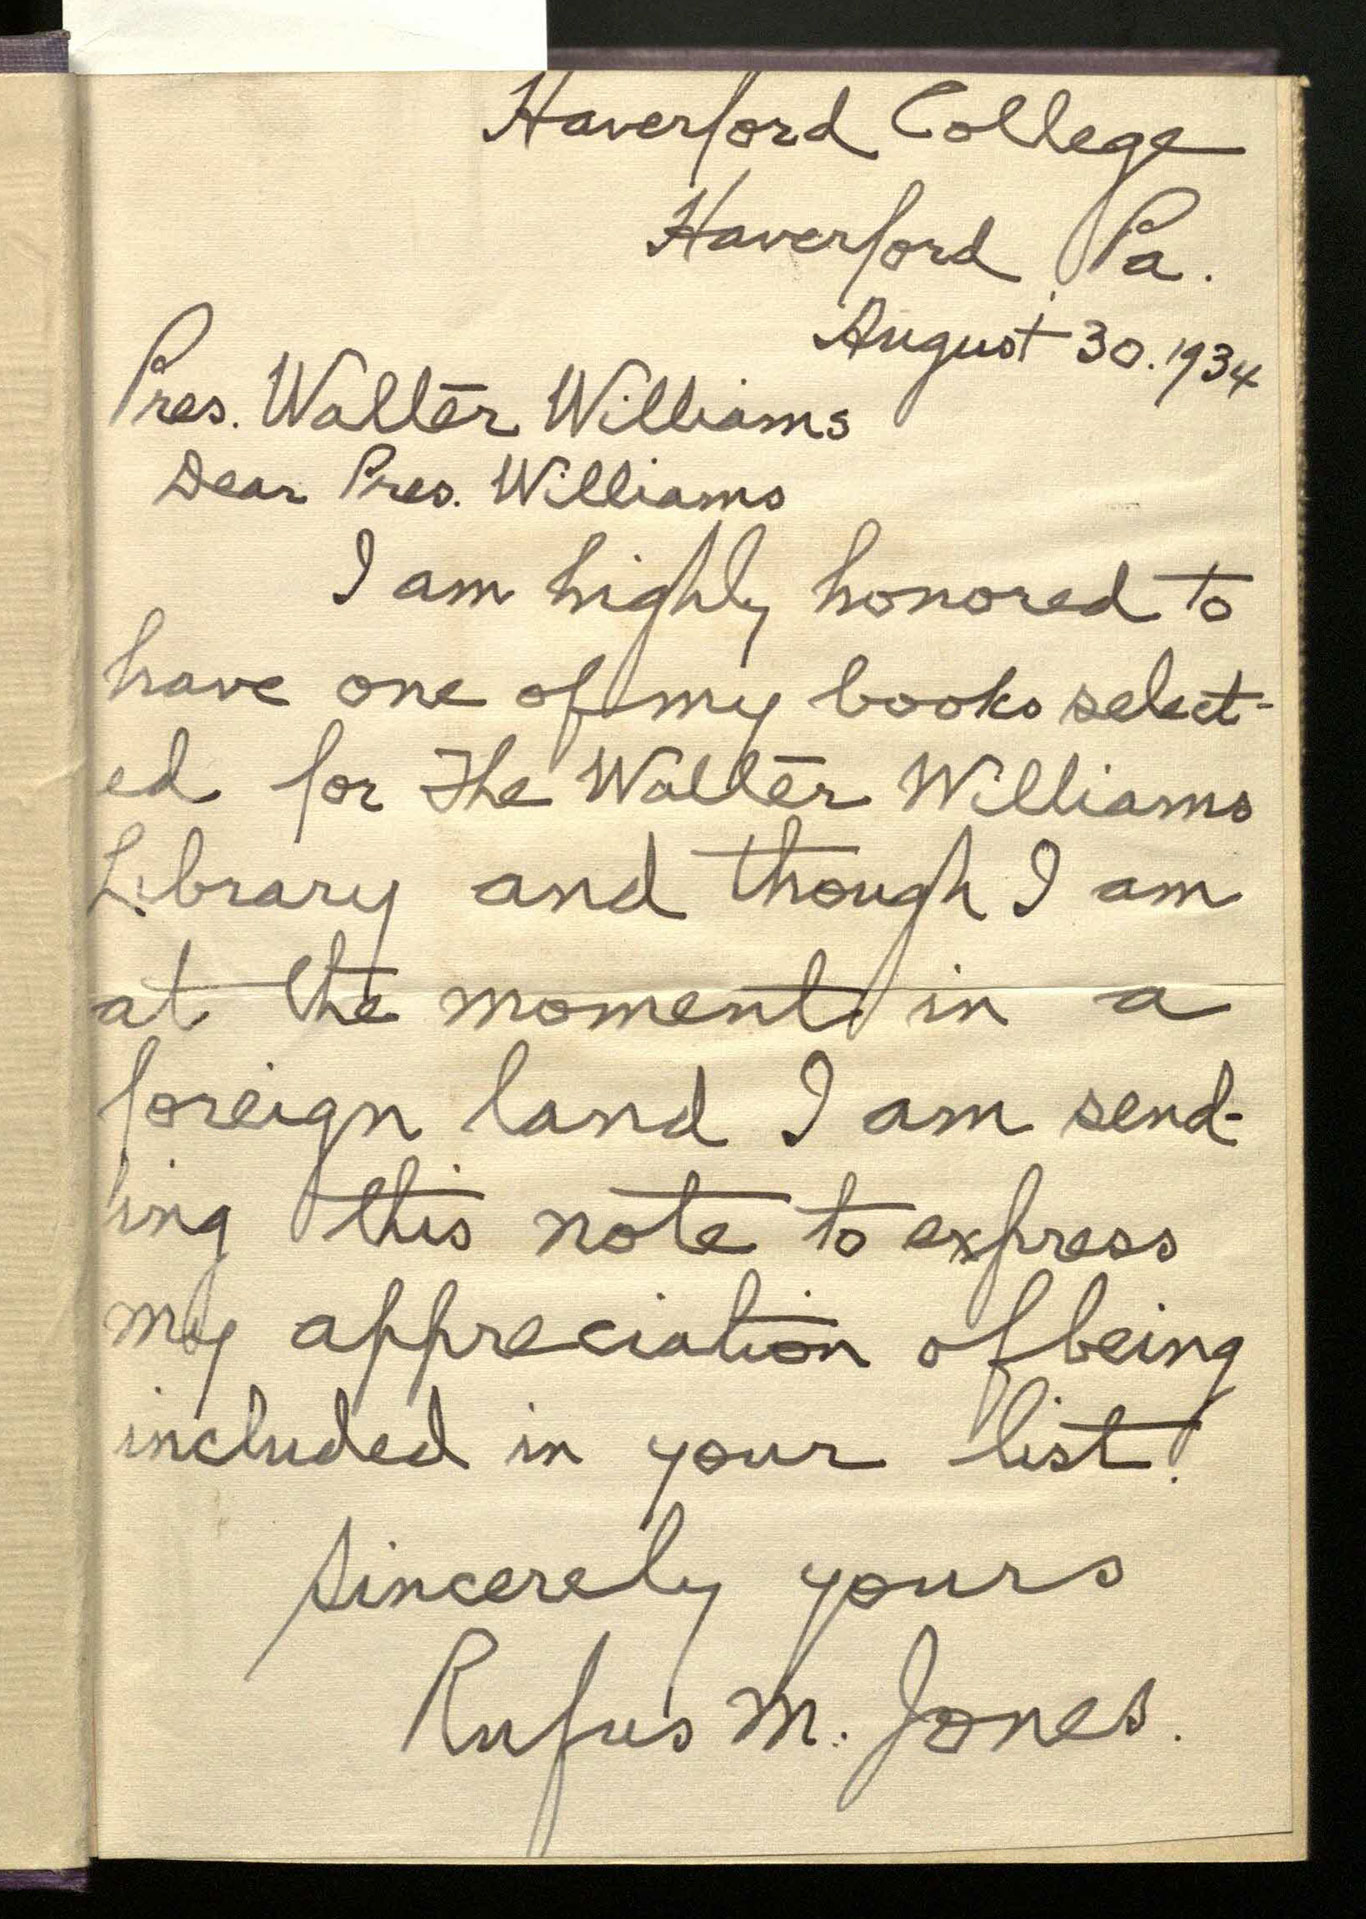 Haverford College
Haverford Pa.
August 30. 1934
Pres. Walter Williams
Dear Pres. Williams
I am highly honored to
have one of my books select-
ed for The Walter Williams
Library and though I am
at the moment in a
foreign land I am send-
ing this note to express
my appreciation of being
included in your list.
Sincerely yours
Rufus M. Jones.